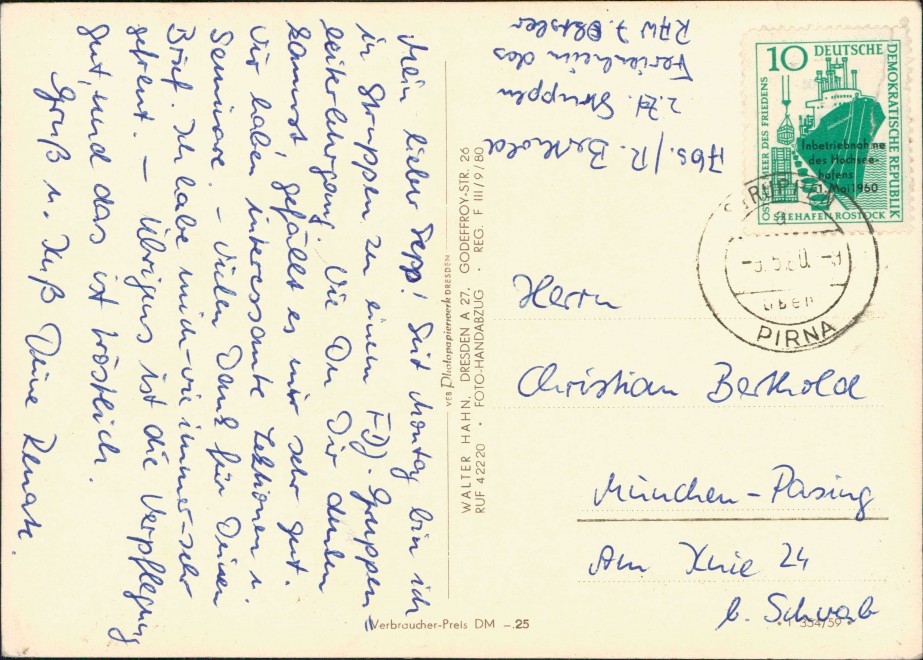 Mein lieber Sepp! Seit Montag bin ich
in Struppen zu einem FDJ-Gruppen-
leiterlehrgang. Wie Du Dir denken
kannst, gefällt es mir sehr gut.
Wir haben interessante Lektionen u.
Seminare. – Vielen Dank für Deinen
Brief. Ich habe mich – wie immer – sehr
gefreut. – Übrigens ist die Verpflegung
gut, und das ist tröstlich.
Gruß u. Kuß Deine Renate.
Abs./R. Berthold
z.Zt. Struppen
Ferienheim des
RAW 7.
VEB Photopapierwerk DRESDEN
WALTER HAHN, DRESDEN A 27, GODEFFROY-STR. 26
RUF 42220 • FOTO-HANDABZUG • REG. F III/9/80
10 DEUTSCHE
DEMOKRATISCHE REPUBLIK
OSTSEE MEER DES FRIEDENS
Inbetriebnahme
des Hochsee-
hafens
1. Mai 1960
SEEHAFEN ROSTOCK
STRUPPEN
über
PIRNA
Herrn
Christian Berthold
München-Pasing
Am Knie 24
b. Schwab
Verbraucher-Preis DM –.25
354/59